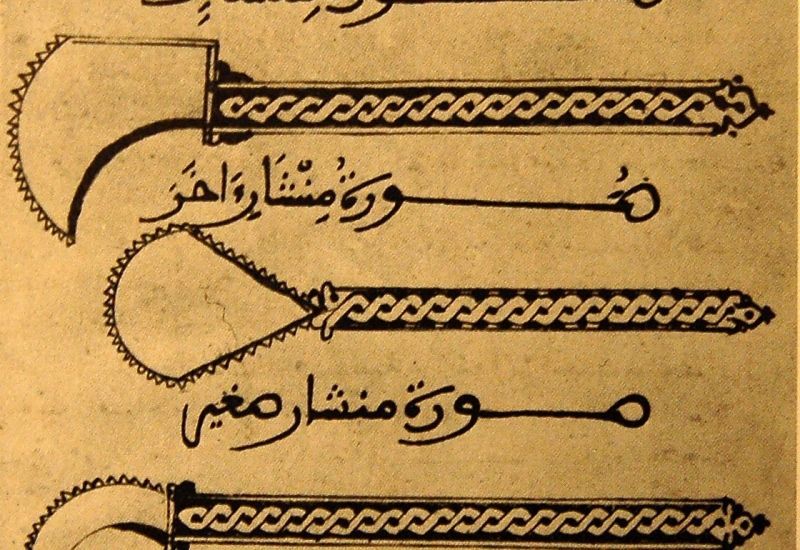 صُـــورَةُ مِنْشَارٍ اخَرَ
صـــورة منشار صغير